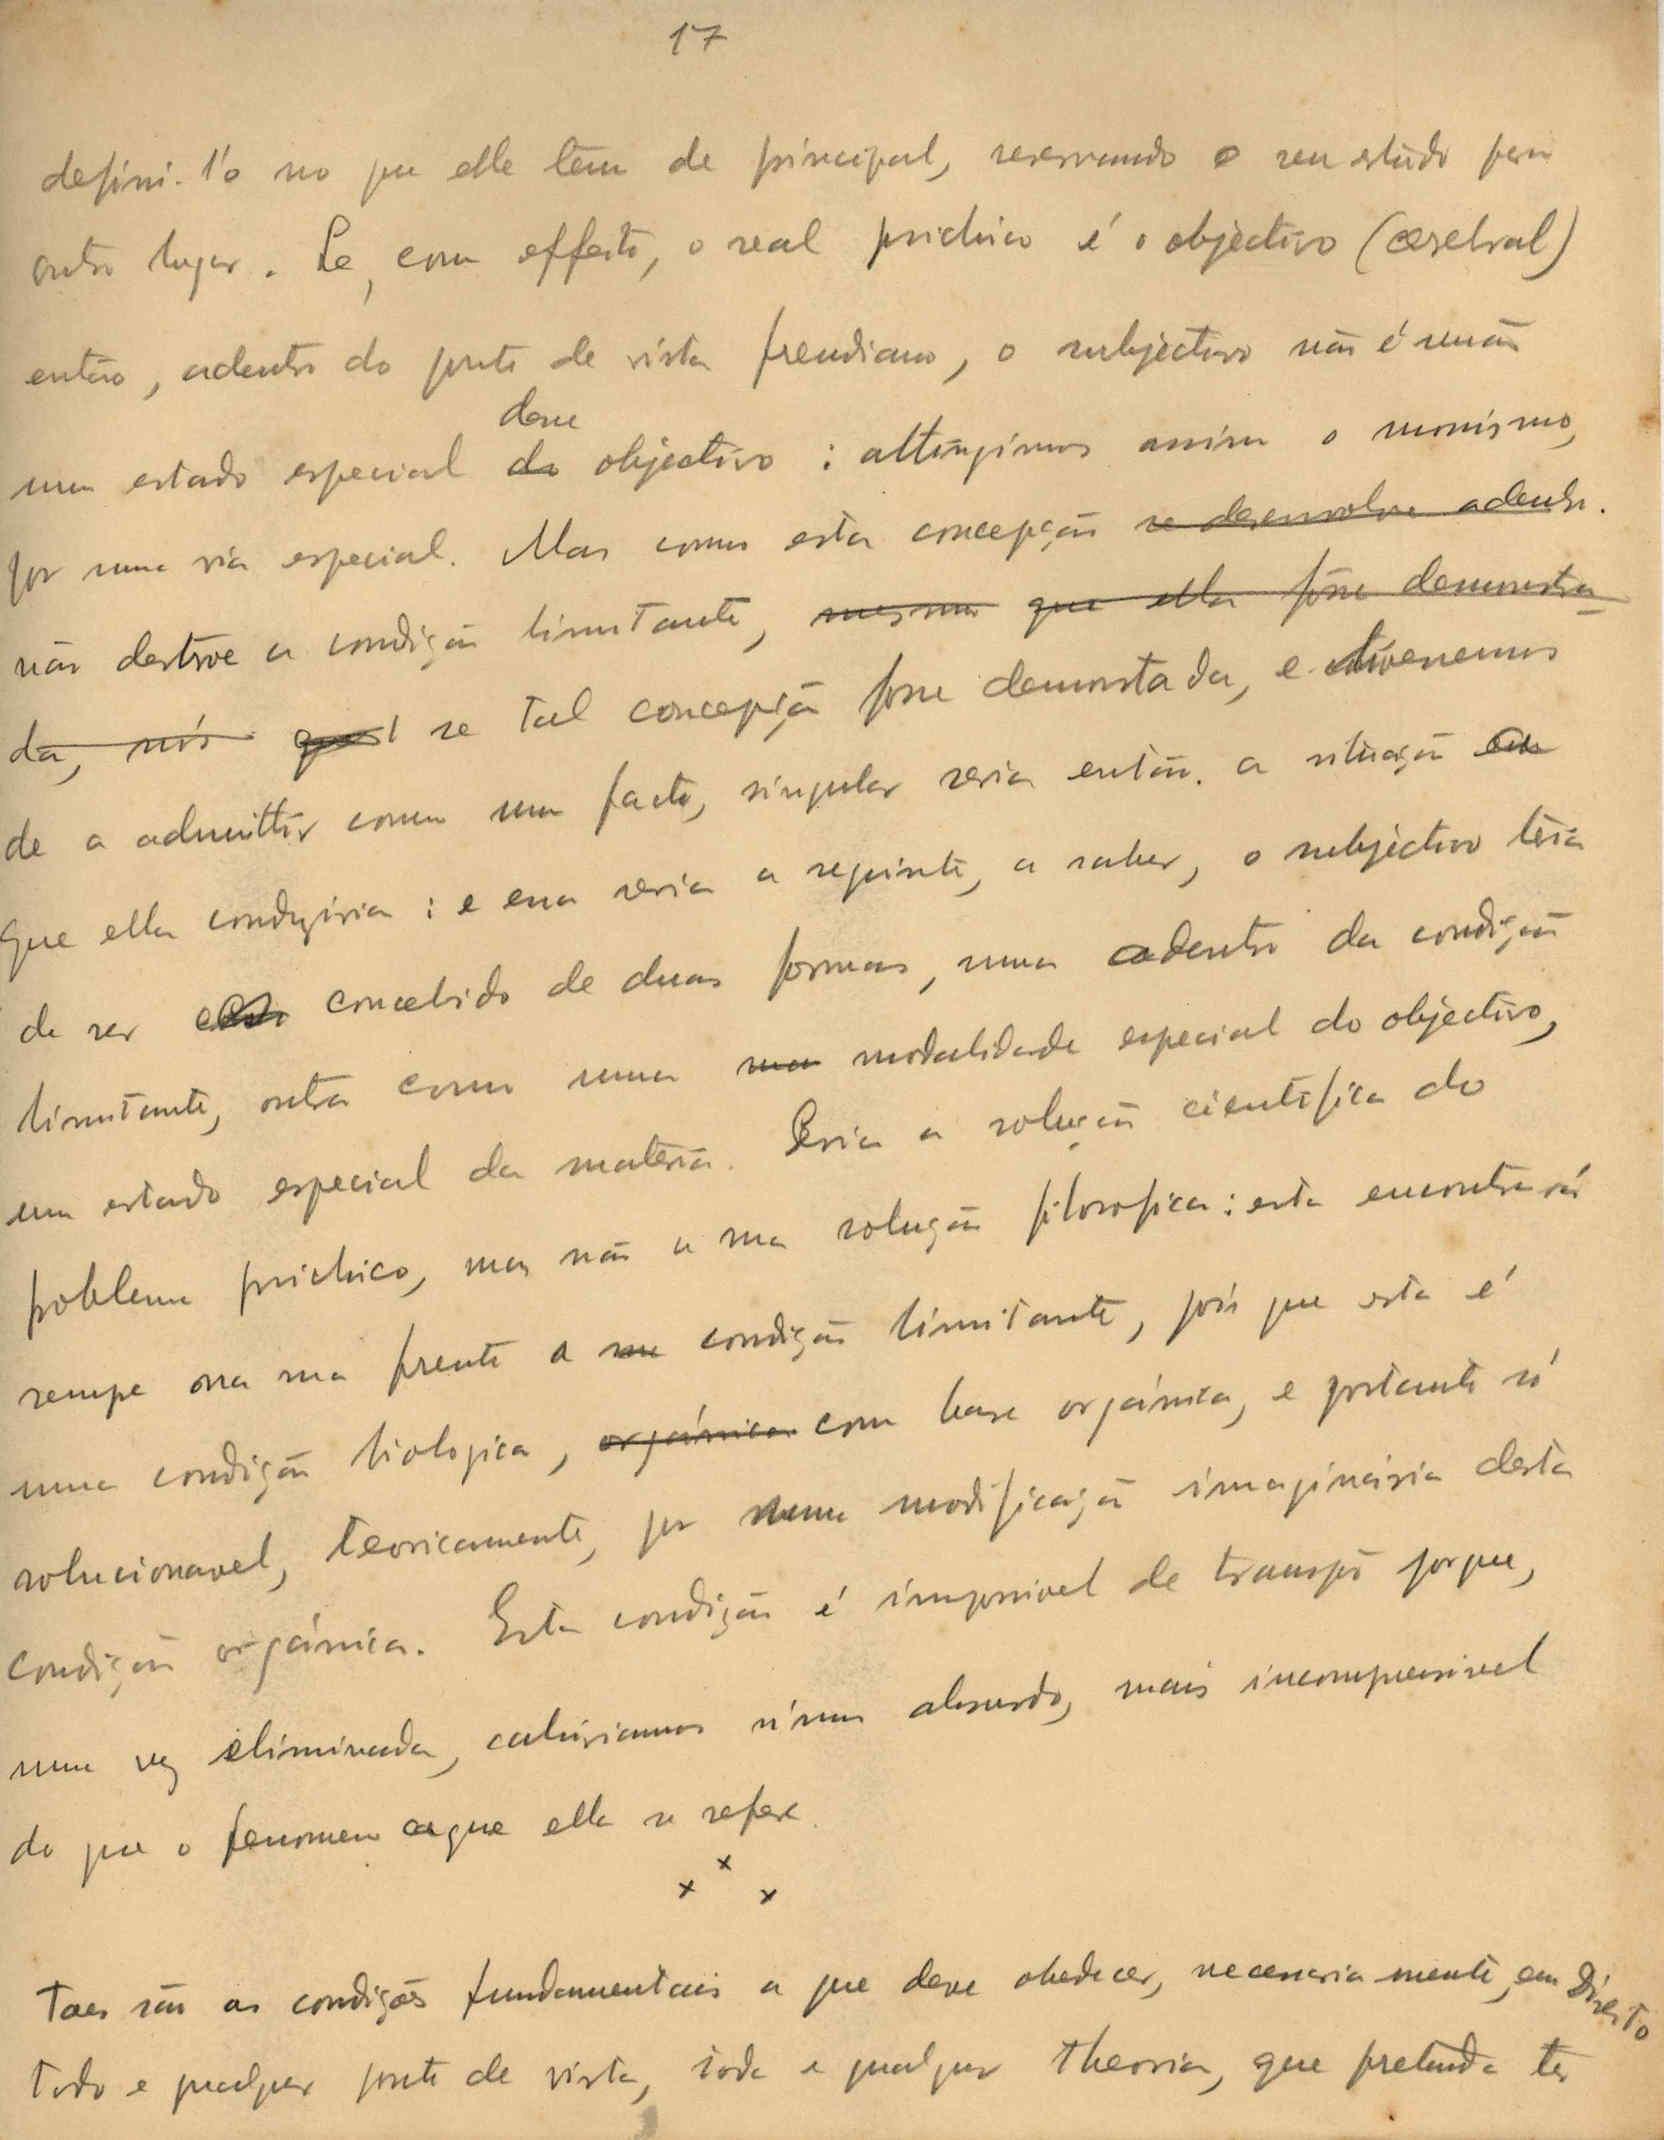 17
defini-l'o no que elle tem de principal, reservando o seu estudo para
outro lugar. Se, com effeito, o real psichico é o objectivo (cerebral)
então, adentro do ponto de vista freudiano, o subjectivo não é senão
desse
um estado especial do objectivo : attingimos assim o monismo,
por uma via especial. Mas como esta concepção se desenvolve adentro.
não destroe a condição limitante, mesmo que ella fosse demonstra-
da, nós que se tal concepção fosse demonstada, e tivessemos
de a admittir como um facto, singular seria então a situação
que ella conduziria : e essa seria a seguinte, a saber, o subjectivo teria
de ser concebido de duas formas, uma adentro da condição
limitante, outra como uma modalidade especial do objectivo,
um estado especial da materia. Seria a solução cientifica do
problema psichico, mas não a sua solução filosofica : esta encontrará
sempre na sua frente a condição limitante, pois que esta é
uma condição biologica, orgánica com base orgánica, e portanto só
solucionavel, teoricamente, por uma modificação imaginária desta
condição orgánica. Esta condição é impossivel de transpôr porque,
uma vez eliminada, cahiriamos n'um absurdo, mais incompreensivel
do que o fenomeno a que ella se refere.
x x x
Taes são as condições fundamentais a que deve obedecer, necessariamente, em Direito
todo e qualquer ponto de vista, toda e qualquer theoria, que pretenda ter